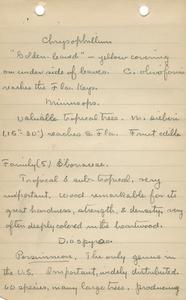 Chrysophyllum
"Golden-leaved" - yellow covering
on under side of leaves. C. oliviforme
reaches the Fla. Keys.
Mimusops.
Valuable tropical trees. M. sieberi
(15-30') reaches S. Fla. Fruit edible
Family (5) Ebenaceae.
Tropical & sub-tropical, very
important. Wood remarkable for its
great hardness, strength, & density, very
often deeply colored in the heartwood.
Diospyros
Persimmon. The only genus in
the U.S. Important, widely distributed.
60 species, many large trees, producing